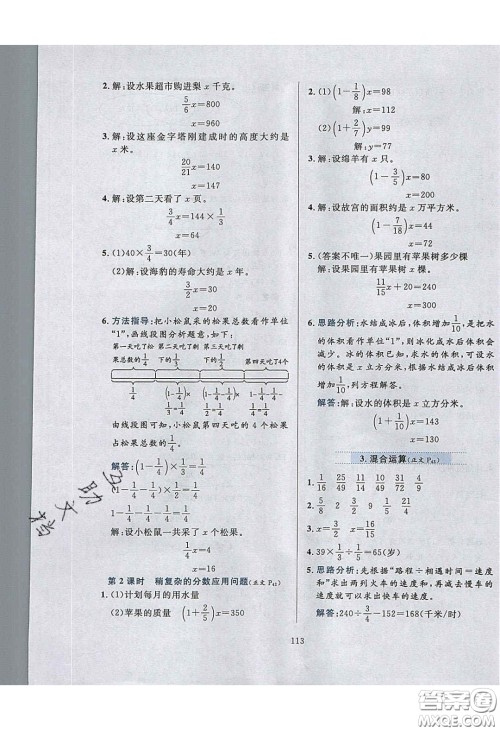 2. 解:设水果超市购进梨 x 千克。
5/6 x=800
x=960
3. 解:设这座金字塔刚建成时的高度大约是
x 米。
20/21 x=140
x=147
4. 解:设第二天看了 x 页。
3/4 x=144×1/3
x=64
5. (1)40×3/4=30(年)
(2)解:设海豹的寿命大约是 x 年。
x=20
6. 方法指导:把小松鼠采的松果总数看作单位
“1”,画线段图分析题意,如下:
第一天吃了松 第二天吃了剩 第三天吃了剩
果总数的1/4 下的1/4 下的1/3 第四天吃4个
由线段图可知,小松鼠第四天吃的 4 个松果
占松果总数的1/4。
解答:(1-1/4)×1/3=1/4
解:设小松鼠一共采了 x 个松果。
1/4 x=4
x=16
第 2 课时 稍复杂的分数应用问题(正文 P42)
1. (1)计划每月的用水量
(2)苹果的质量 (1+2/5)x=350
2. (1)(1-1/8)x=98
解:x=112
(2)(1+2/7)y=99
解:y=77
3. 解:设绵羊有 x 只。
(1-3/5)x=140
x=350
4. 解:设故宫的面积约是 x 万平方米。
(1-7/18)x=44
x=72
5. (答案不唯一)果园里有苹果树多少棵
解:设果园里有苹果树 x 棵。
11/15 x+20=240
x=300
6. 思路分析:水结成冰后,体积增加1/10,是把水
的体积看作单位“1”,则冰化成水后体积会
减少。冰的体积已知,求水的体积,可设水
的体积为未知数,根据水结成冰后体积增
加1/10,列方程解答。
解答:解:设水的体积是 x 立方分米。
(1+1/10)x=143
x=130
3. 混合运算(正文 P43)
2. 5/8 2/9 3 1/2 3/4 1/6
4. 39×1/3÷1/5=65(岁)
5. 思路分析:先根据“路程÷相遇时间=速度
和”求出两列火车的速度和,再减去慢车的
速度就可以求出快车的速度。
解答:240÷3/4-152=168(千米/时)
113
答案圈
MXQE.COM